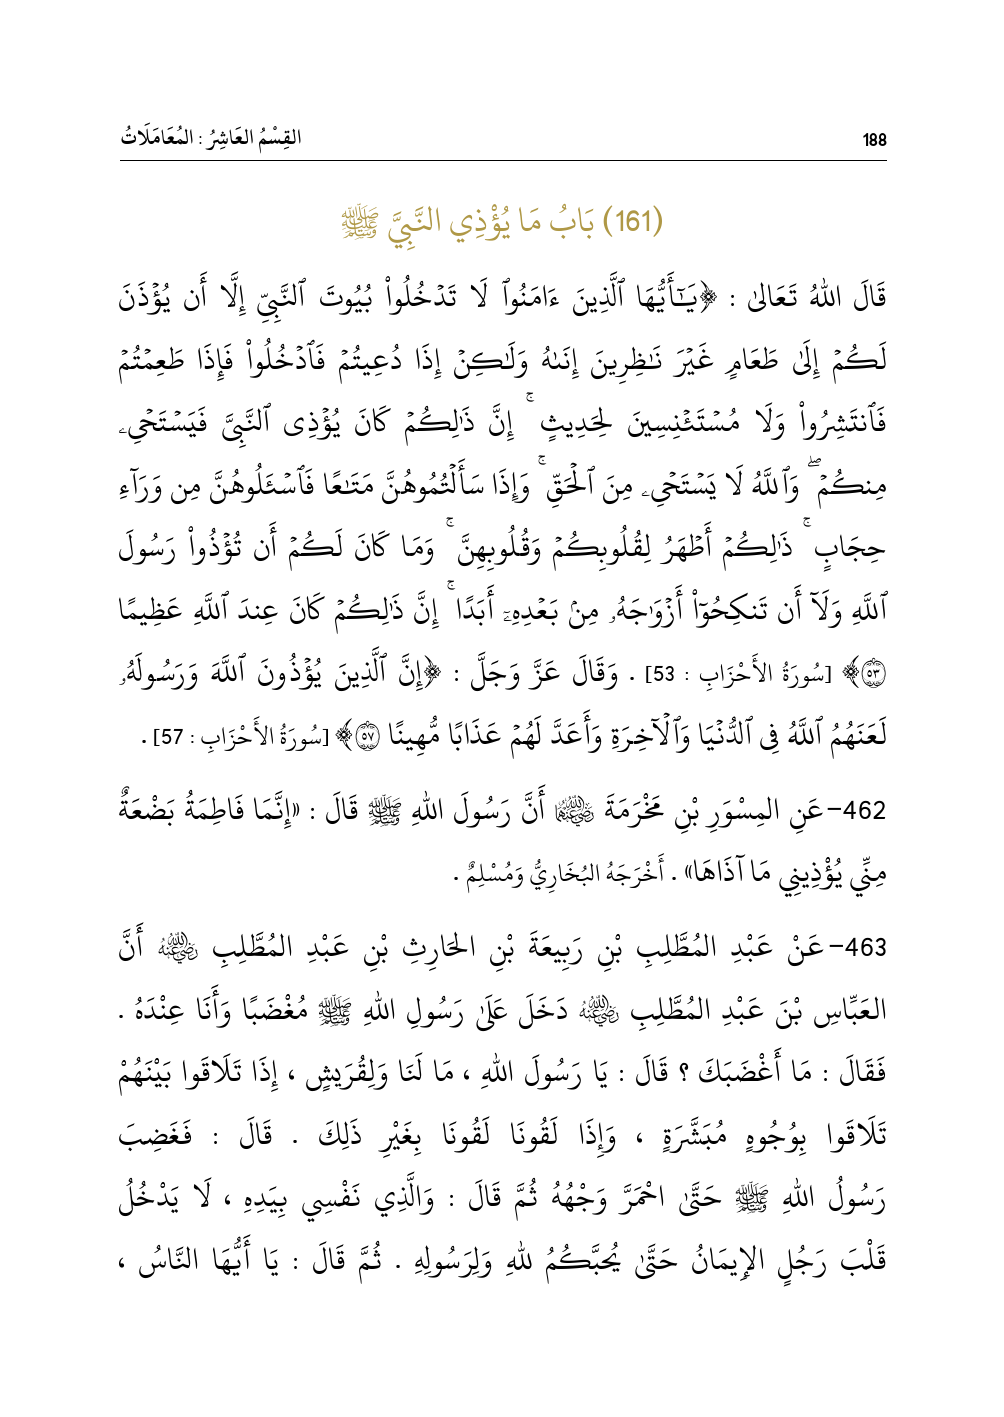 188
القِسْمُ العَاشِرُ : المُعَامَلَاتُ
(161) بَابُ مَا يُؤْذِي النَّبِيَّ ﷺ
قَالَ اللهُ تَعَالىٰ : ﴿يَـٰٓأَيُّهَا ٱلَّذِينَ ءَامَنُوا۟ لَا تَدۡخُلُوا۟ بُيُوتَ ٱلنَّبِيِّ إِلَّا أَن يُؤۡذَنَ
لَكُمۡ إِلَىٰ طَعَامٍ غَيۡرَ نَـٰظِرِينَ إِنَىٰهُ وَلَـٰكِنۡ إِذَا دُعِيتُمۡ فَٱدۡخُلُوا۟ فَإِذَا طَعِمۡتُمۡ
فَٱنتَشِرُوا۟ وَلَا مُسۡتَـٔۡنِسِينَ لِحَدِيثٍ ۚ إِنَّ ذَٰلِكُمۡ كَانَ يُؤۡذِى ٱلنَّبِيَّ فَيَسۡتَحۡيِۦ
مِنكُمۡ ۖ وَٱللَّهُ لَا يَسۡتَحۡيِۦ مِنَ ٱلۡحَقِّ ۚ وَإِذَا سَأَلۡتُمُوهُنَّ مَتَـٰعًا فَٱسۡـَٔلُوهُنَّ مِن وَرَآءِ
حِجَابٍ ۚ ذَٰلِكُمۡ أَطۡهَرُ لِقُلُوبِكُمۡ وَقُلُوبِهِنَّ ۚ وَمَا كَانَ لَكُمۡ أَن تُؤۡذُوا۟ رَسُولَ
ٱللَّهِ وَلَآ أَن تَنكِحُوٓا۟ أَزۡوَٰجَهُۥ مِنۢ بَعۡدِهِۦٓ أَبَدًا ۚ إِنَّ ذَٰلِكُمۡ كَانَ عِندَ ٱللَّهِ عَظِيمًا
۝٥٣﴾ [سُورَةُ الأَحْزَابِ : 53] . وَقَالَ عَزَّ وَجَلَّ : ﴿إِنَّ ٱلَّذِينَ يُؤۡذُونَ ٱللَّهَ وَرَسُولَهُۥ
لَعَنَهُمُ ٱللَّهُ فِى ٱلدُّنۡيَا وَٱلۡـَٔاخِرَةِ وَأَعَدَّ لَهُمۡ عَذَابًا مُّهِينًا ۝٥٧﴾ [سُورَةُ الأَحْزَابِ : 57] .
462- عَنِ المِسْوَرِ بْنِ مَخْرَمَةَ رَضِيَ اللهُ عَنْهُمَا أَنَّ رَسُولَ اللهِ ﷺ قَالَ : «إِنَّمَا فَاطِمَةُ بَضْعَةٌ
مِنِّي يُؤْذِينِي مَا آذَاهَا» . أَخْرَجَهُ البُخَارِيُّ وَمُسْلِمٌ .
463- عَنْ عَبْدِ المُطَّلِبِ بْنِ رَبِيعَةَ بْنِ الحَارِثِ بْنِ عَبْدِ المُطَّلِبِ رَضِيَ اللهُ عَنْهُ أَنَّ
العَبَّاسِ بْنَ عَبْدِ المُطَّلِبِ رَضِيَ اللهُ عَنْهُ دَخَلَ عَلَىٰ رَسُولِ اللهِ ﷺ مُغْضَبًا وَأَنَا عِنْدَهُ .
فَقَالَ : مَا أَغْضَبَكَ ؟ قَالَ : يَا رَسُولَ اللهِ ، مَا لَنَا وَلِقُرَيْشٍ ، إِذَا تَلَاقَوا بَيْنَهُمْ
تَلَاقَوا بِوُجُوهٍ مُبَشَّرَةٍ ، وَإِذَا لَقُونَا لَقُونَا بِغَيْرِ ذَلِكَ . قَالَ : فَغَضِبَ
رَسُولُ اللهِ ﷺ حَتَّىٰ احْمَرَّ وَجْهُهُ ثُمَّ قَالَ : وَالَّذِي نَفْسِي بِيَدِهِ ، لَا يَدْخُلُ
قَلْبَ رَجُلٍ الإِيمَانُ حَتَّىٰ يُحِبَّكُمُ للهِ وَلِرَسُولِهِ . ثُمَّ قَالَ : يَا أَيُّهَا النَّاسُ ،